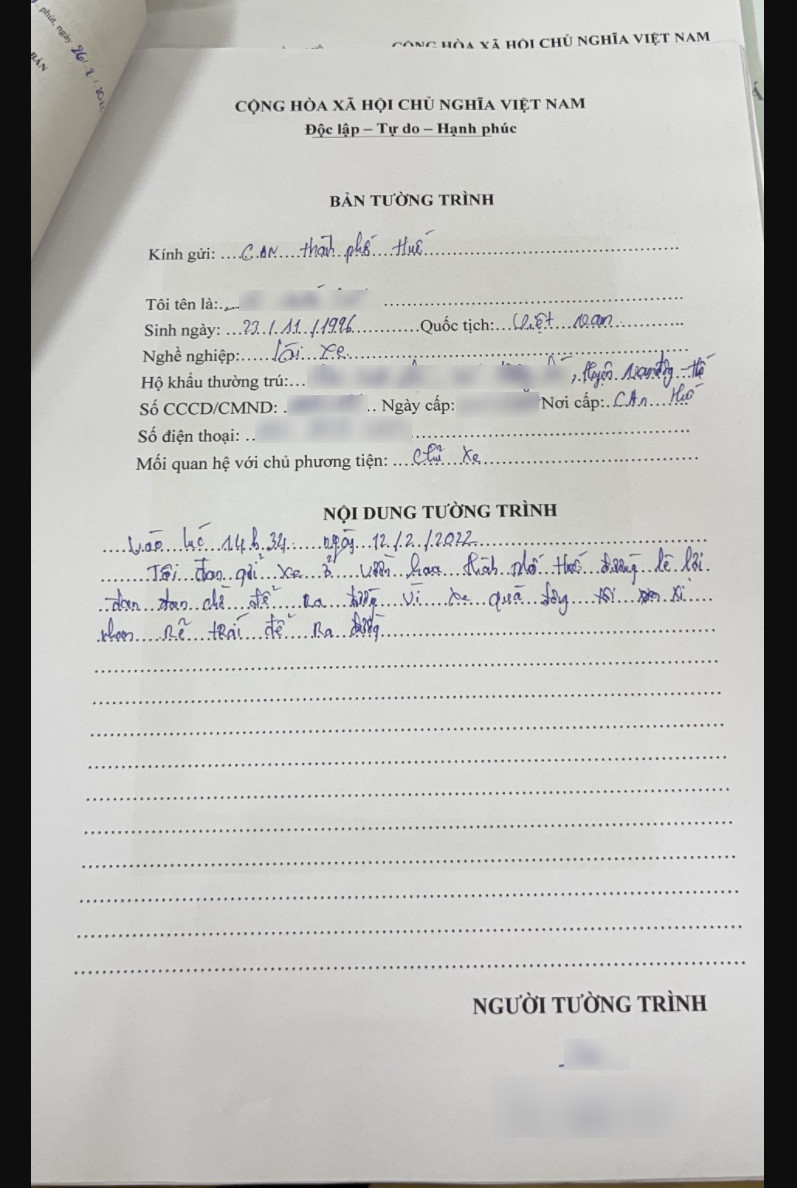 phút, ngày 26/2/20
BẢN
CỘNG HÒA XÃ HỘI CHỦ NGHĨA VIỆT NAM
CỘNG HÒA XÃ HỘI CHỦ NGHĨA VIỆT NAM
Độc lập – Tự do – Hạnh phúc
BẢN TƯỜNG TRÌNH
Kính gửi: CAN thành phố Huế
Tôi tên là:
Sinh ngày: 23/11/1996 Quốc tịch: Việt Nam
Nghề nghiệp: lái xe
Hộ khẩu thường trú: , Huyện Nam Đông
Số CCCD/CMND: Ngày cấp: Nơi cấp: CAn Huế
Số điện thoại:
Mối quan hệ với chủ phương tiện: Chủ xe
NỘI DUNG TƯỜNG TRÌNH
Vào lúc 14h34 ngày 12/2/2022
Tôi đan gửi xe ở vườn hoa thành phố Huế đường lê lơi
đan để ra đường vì xe quá đông tôi xi
nhan rẽ trái để ra đường
NGƯỜI TƯỜNG TRÌNH